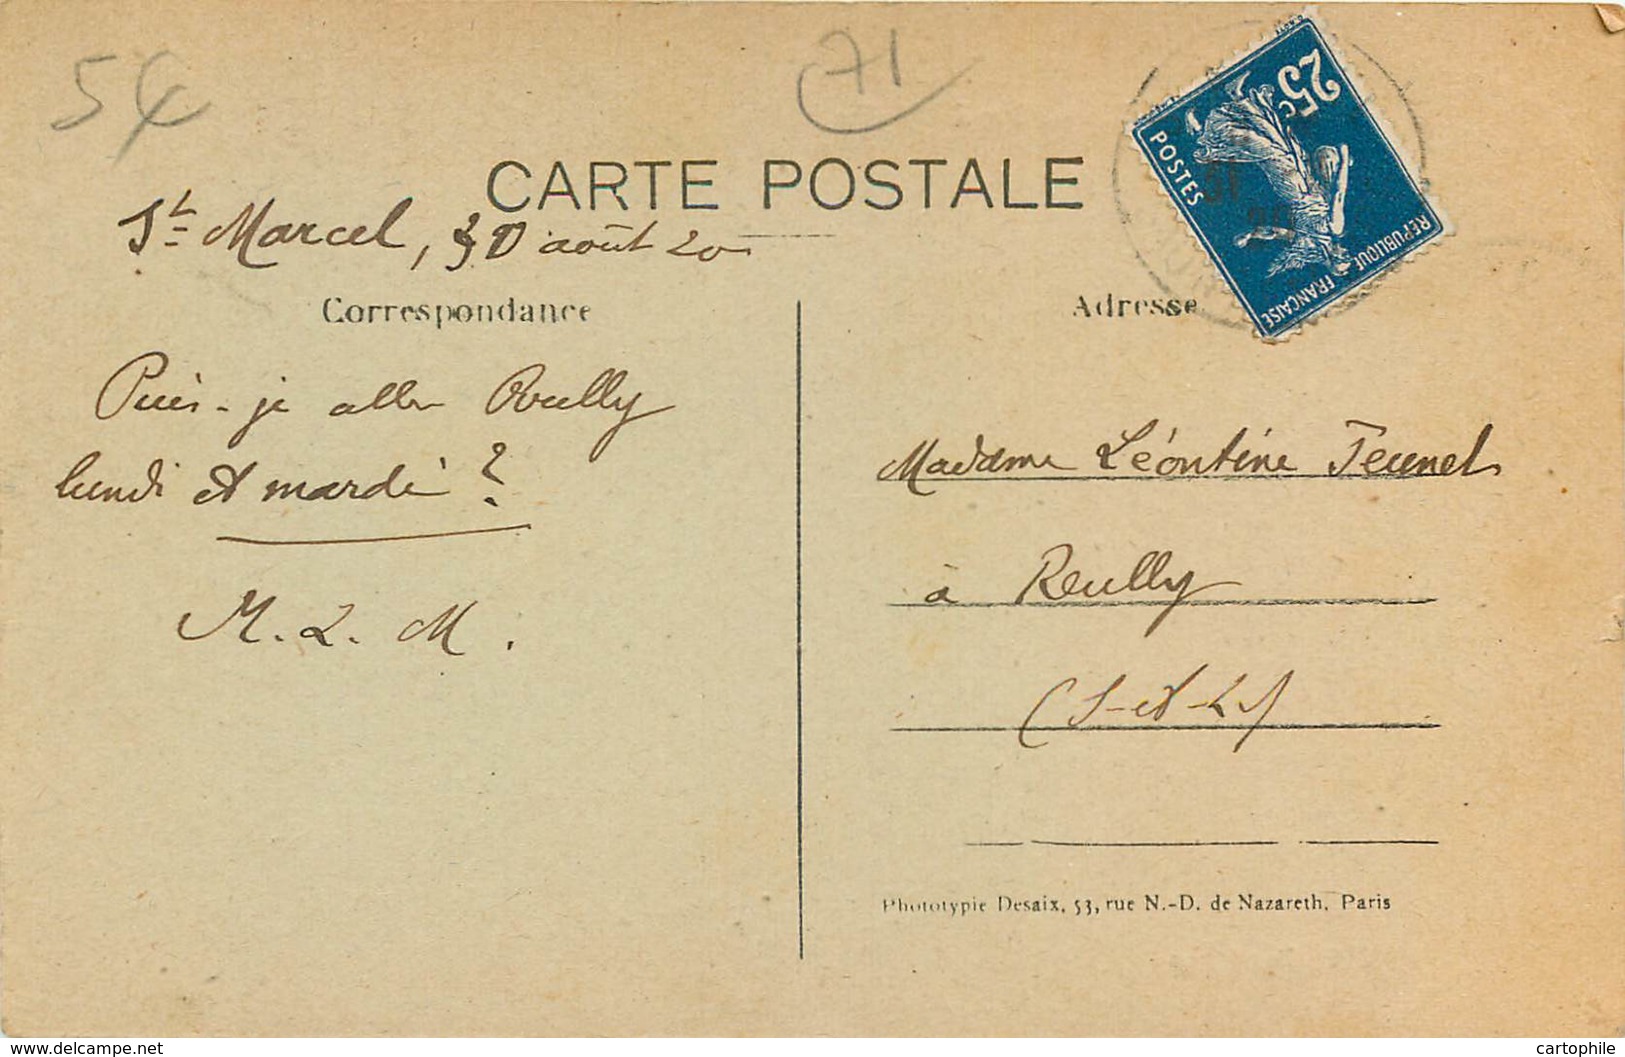 54
71
CARTE POSTALE
25c
POSTES
REPUBLIQUE FRANÇAISE
31
20
St Marcel, 30 août 20
Correspondance
Puis-je aller Reully
lundi et mardi ?
M. L. M.
Adresse
Madame Léontine Jeunet
à Reully
(S-et-L)
Phototypie Desaix, 53, rue N.-D. de Nazareth, Paris
www.delcampe.net
cartophile